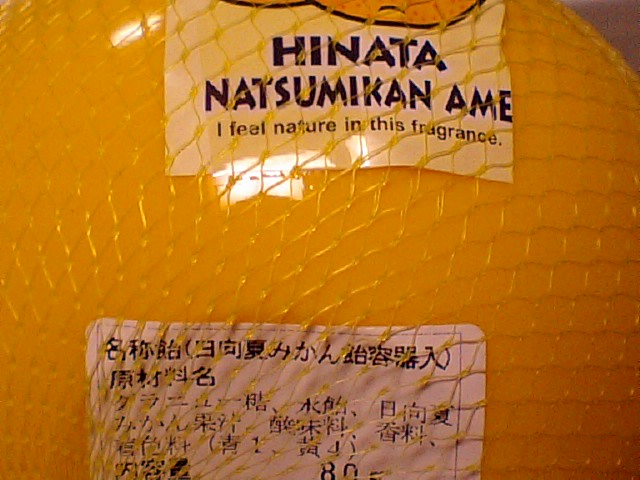 HINATA
NATSUMIKAN AME
I feel nature in this fragrance.
名称飴(日向夏みかん飴容器入)
原材料名
グラニュー糖、水飴、日向夏
みかん果汁 酸味料、香料、
着色料(青1、黄4)
内容量 80g